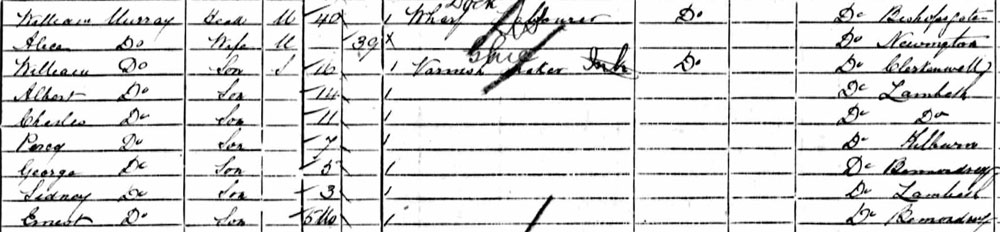 Dock
William Murray Head M 40 1 Wharf Labourer Do Do Bishopsgate
Alice Do Wife M 39 x Do Newington
William Do Son S 16 1 Varnish Maker Do Do Clerkenwell
Albert Do Son 14 1 Do Lambeth
Charles Do Son 11 1 Do Do
Percy Do Son 7 1 Do Kilburn
George Do Son 5 1 Do Bermondsey
Sidney Do Son 3 1 Do Lambeth
Ernest Do Son 1 Do Bermondsey